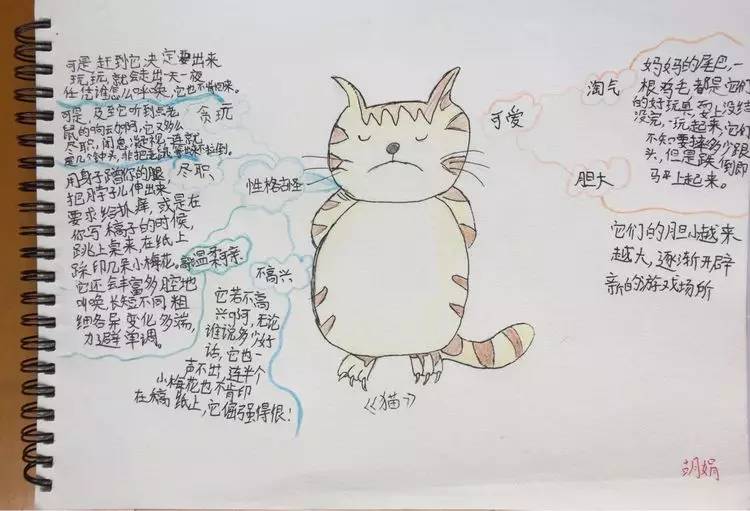 可是赶到它决定要出来
玩玩,就会走出一天一夜
任凭谁怎么呼唤,它也不肯回来。
贪玩
可是,及至它听到点老
鼠的响动啊,它又多么
尽职,闭息凝视,一连就
是几个钟头,非把老鼠等出来不拉倒。
尽职、
用身子蹭你的腿,
把脖子儿伸出来,
要求给抓痒,或是在
你写稿子的时候,
跳上桌来,在纸上
踩印几朵小梅花。
温柔可亲
它还会丰富多腔地
叫唤,长短不同,粗
细各异,变化多端,
力避单调。
性格古怪
不高兴
它若不高
兴啊,无论
谁说多少好
话,它也一
声不出,连半个
小梅花也不肯印
在稿纸上,它倔强得很!
《猫》
可爱
淘气
妈妈的尾巴,一
根鸡毛都是它们
的好玩具,耍上没结
没完,一玩起来,它们
不知要摔多少跟
头,但是跌倒即
马上起来。
胆大
它们的胆小越来
越大,逐渐开辟
新的游戏场所
胡娟